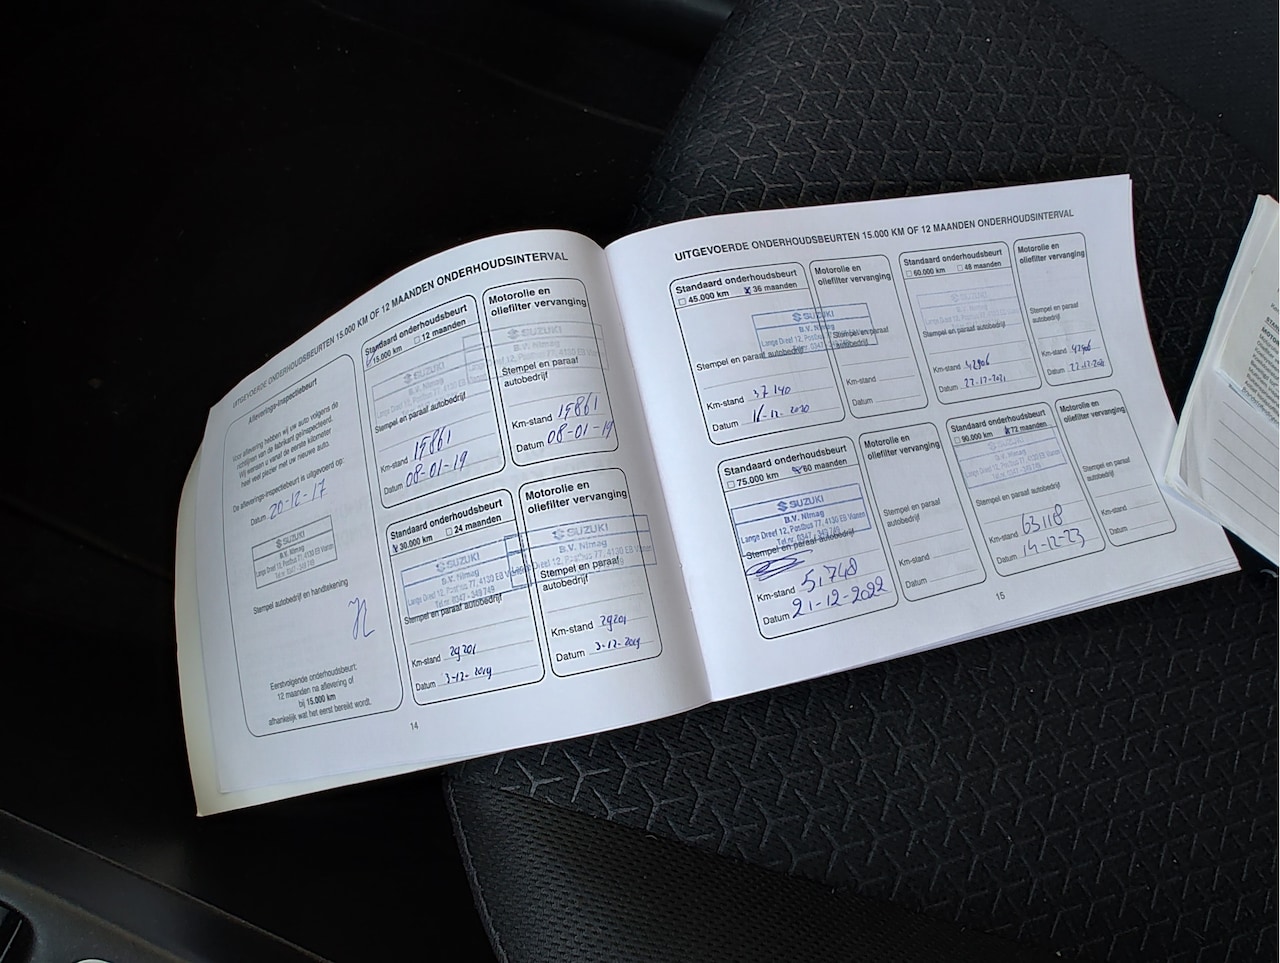 UITGEVOERDE ONDERHOUDSBEURTEN 15.000 KM OF 12 MAANDEN ONDERHOUDSINTERVAL
Afleverings-inspectiebeurt
Voor aflevering hebben wij uw auto volgens de
richtlijnen van de fabrikant geïnspecteerd.
Wij wensen u vanaf de eerste kilometer
heel veel plezier met uw nieuwe auto.
De afleverings-inspectiebeurt is uitgevoerd op:
Datum 20-12-17
SUZUKI
B.V. Nimag
Lange Dreef 12, Postbus 77, 4130 EB Vianen
Tel.nr. 0347 - 349 749
Stempel autobedrijf en handtekening
Eerstvolgende onderhoudsbeurt:
12 maanden na aflevering of
bij 15.000 km
afhankelijk wat het eerst bereikt wordt.
Standaard onderhoudsbeurt
15.000 km 12 maanden
SUZUKI
B.V. Nimag
Stempel en paraaf autobedrijf
Km-stand 15861
Datum 08-01-19
Motorolie en
oliefilter vervanging
SUZUKI
B.V. Nimag
Lange Dreef 12, Postbus 77, 4130 EB Vianen
Stempel en paraaf
autobedrijf
Km-stand 15861
Datum 08-01-19
Standaard onderhoudsbeurt
30.000 km 24 maanden
SUZUKI
B.V. Nimag
Lange Dreef 12, Postbus 77, 4130 EB Vianen
Tel.nr. 0347 - 349 749
Stempel en paraaf autobedrijf
Km-stand 29201
Datum 3-12-2019
Motorolie en
oliefilter vervanging
SUZUKI
B.V. Nimag
Lange Dreef 12, Postbus 77, 4130 EB Vianen
Stempel en paraaf
autobedrijf
Km-stand 29201
Datum 3-12-2019
14
UITGEVOERDE ONDERHOUDSBEURTEN 15.000 KM OF 12 MAANDEN ONDERHOUDSINTERVAL
Standaard onderhoudsbeurt
45.000 km 36 maanden
SUZUKI
B.V. Nimag
Lange Dreef 12, Postbus
Stempel en paraaf autobedrijf
Km-stand 37140
Datum 16-12-2020
Motorolie en
oliefilter vervanging
Stempel en paraaf
autobedrijf
Km-stand
Datum
Standaard onderhoudsbeurt
60.000 km 48 maanden
SUZUKI
Stempel en paraaf autobedrijf
Km-stand 42906
Datum 22-12-2021
Motorolie en
oliefilter vervanging
Stempel en paraaf
autobedrijf
Km-stand 42906
Datum
Standaard onderhoudsbeurt
75.000 km 60 maanden
SUZUKI
B.V. Nimag
Lange Dreef 12, Postbus 77, 4130 EB Vianen
Tel.nr. 0347 - 349 749
Stempel en paraaf autobedrijf
Km-stand 51748
Datum 21-12-2022
Motorolie en
oliefilter vervanging
Stempel en paraaf
autobedrijf
Km-stand
Datum
Standaard onderhoudsbeurt
90.000 km 72 maanden
SUZUKI
Stempel en paraaf autobedrijf
Km-stand 63118
Datum 14-12-23
Motorolie en
oliefilter vervanging
Stempel en paraaf
autobedrijf
Km-stand
Datum
15